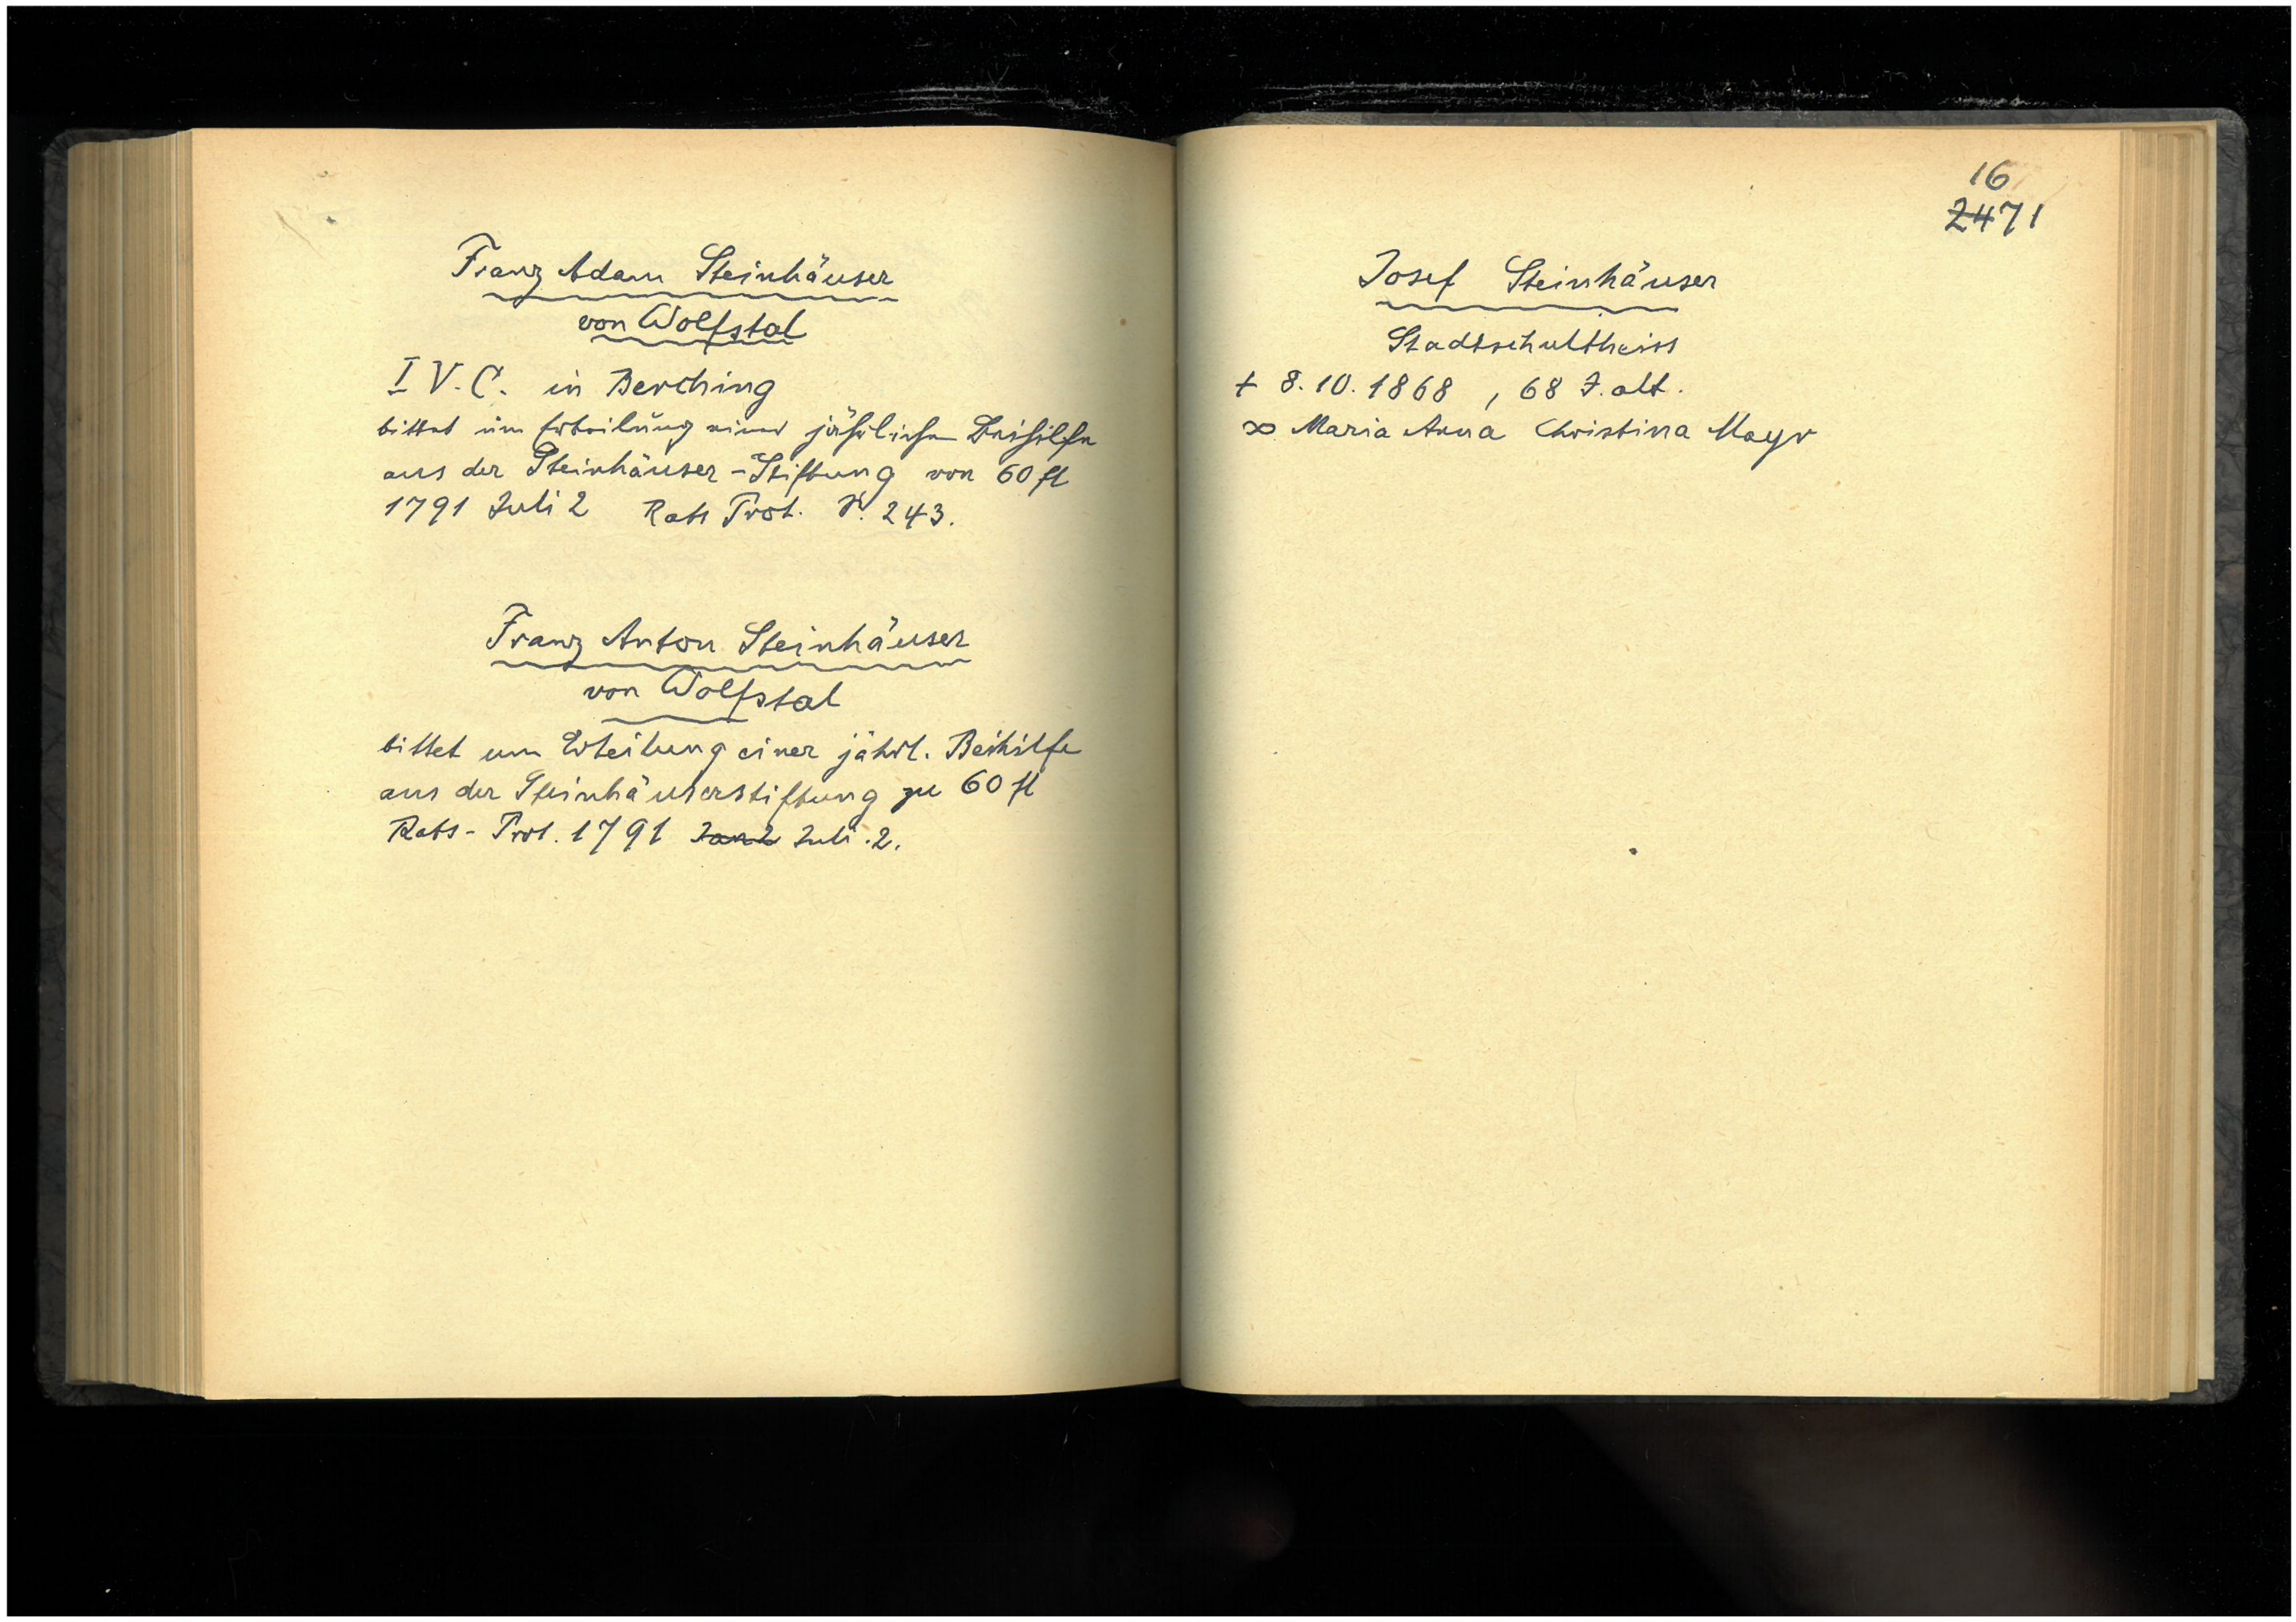 Franz Adam Steinhäuser
von Wolfstal
I V. C. in Berching
bittet um Erteilung einer jährlichen Beihilfe
aus der Steinhäuser-Stiftung von 60 fl
1791 Juli 2 Rats Prot. S. 243.
Franz Anton Steinhäuser
von Wolfstal
bittet um Erteilung einer jährl. Beihilfe
aus der Steinhäuserstiftung zu 60 fl
Rats-Prot. 1791 Jan 2 Juli. 2.
16
2471
Josef Steinhäuser
Stadtschultheiss
+ 8. 10. 1868, 68 J. alt.
∞ Maria Anna Christina Mayr